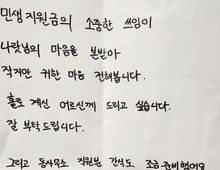 민생지원금의 소중한 쓰임이
나랏님의 마음을 본받아
작지만 귀한 마음 전해봅니다.
홀로 계신 어르신께 드리고 싶습니다.
잘 부탁드립니다.
그리고 동사무소 직원분 간식도 조금 준비했어요